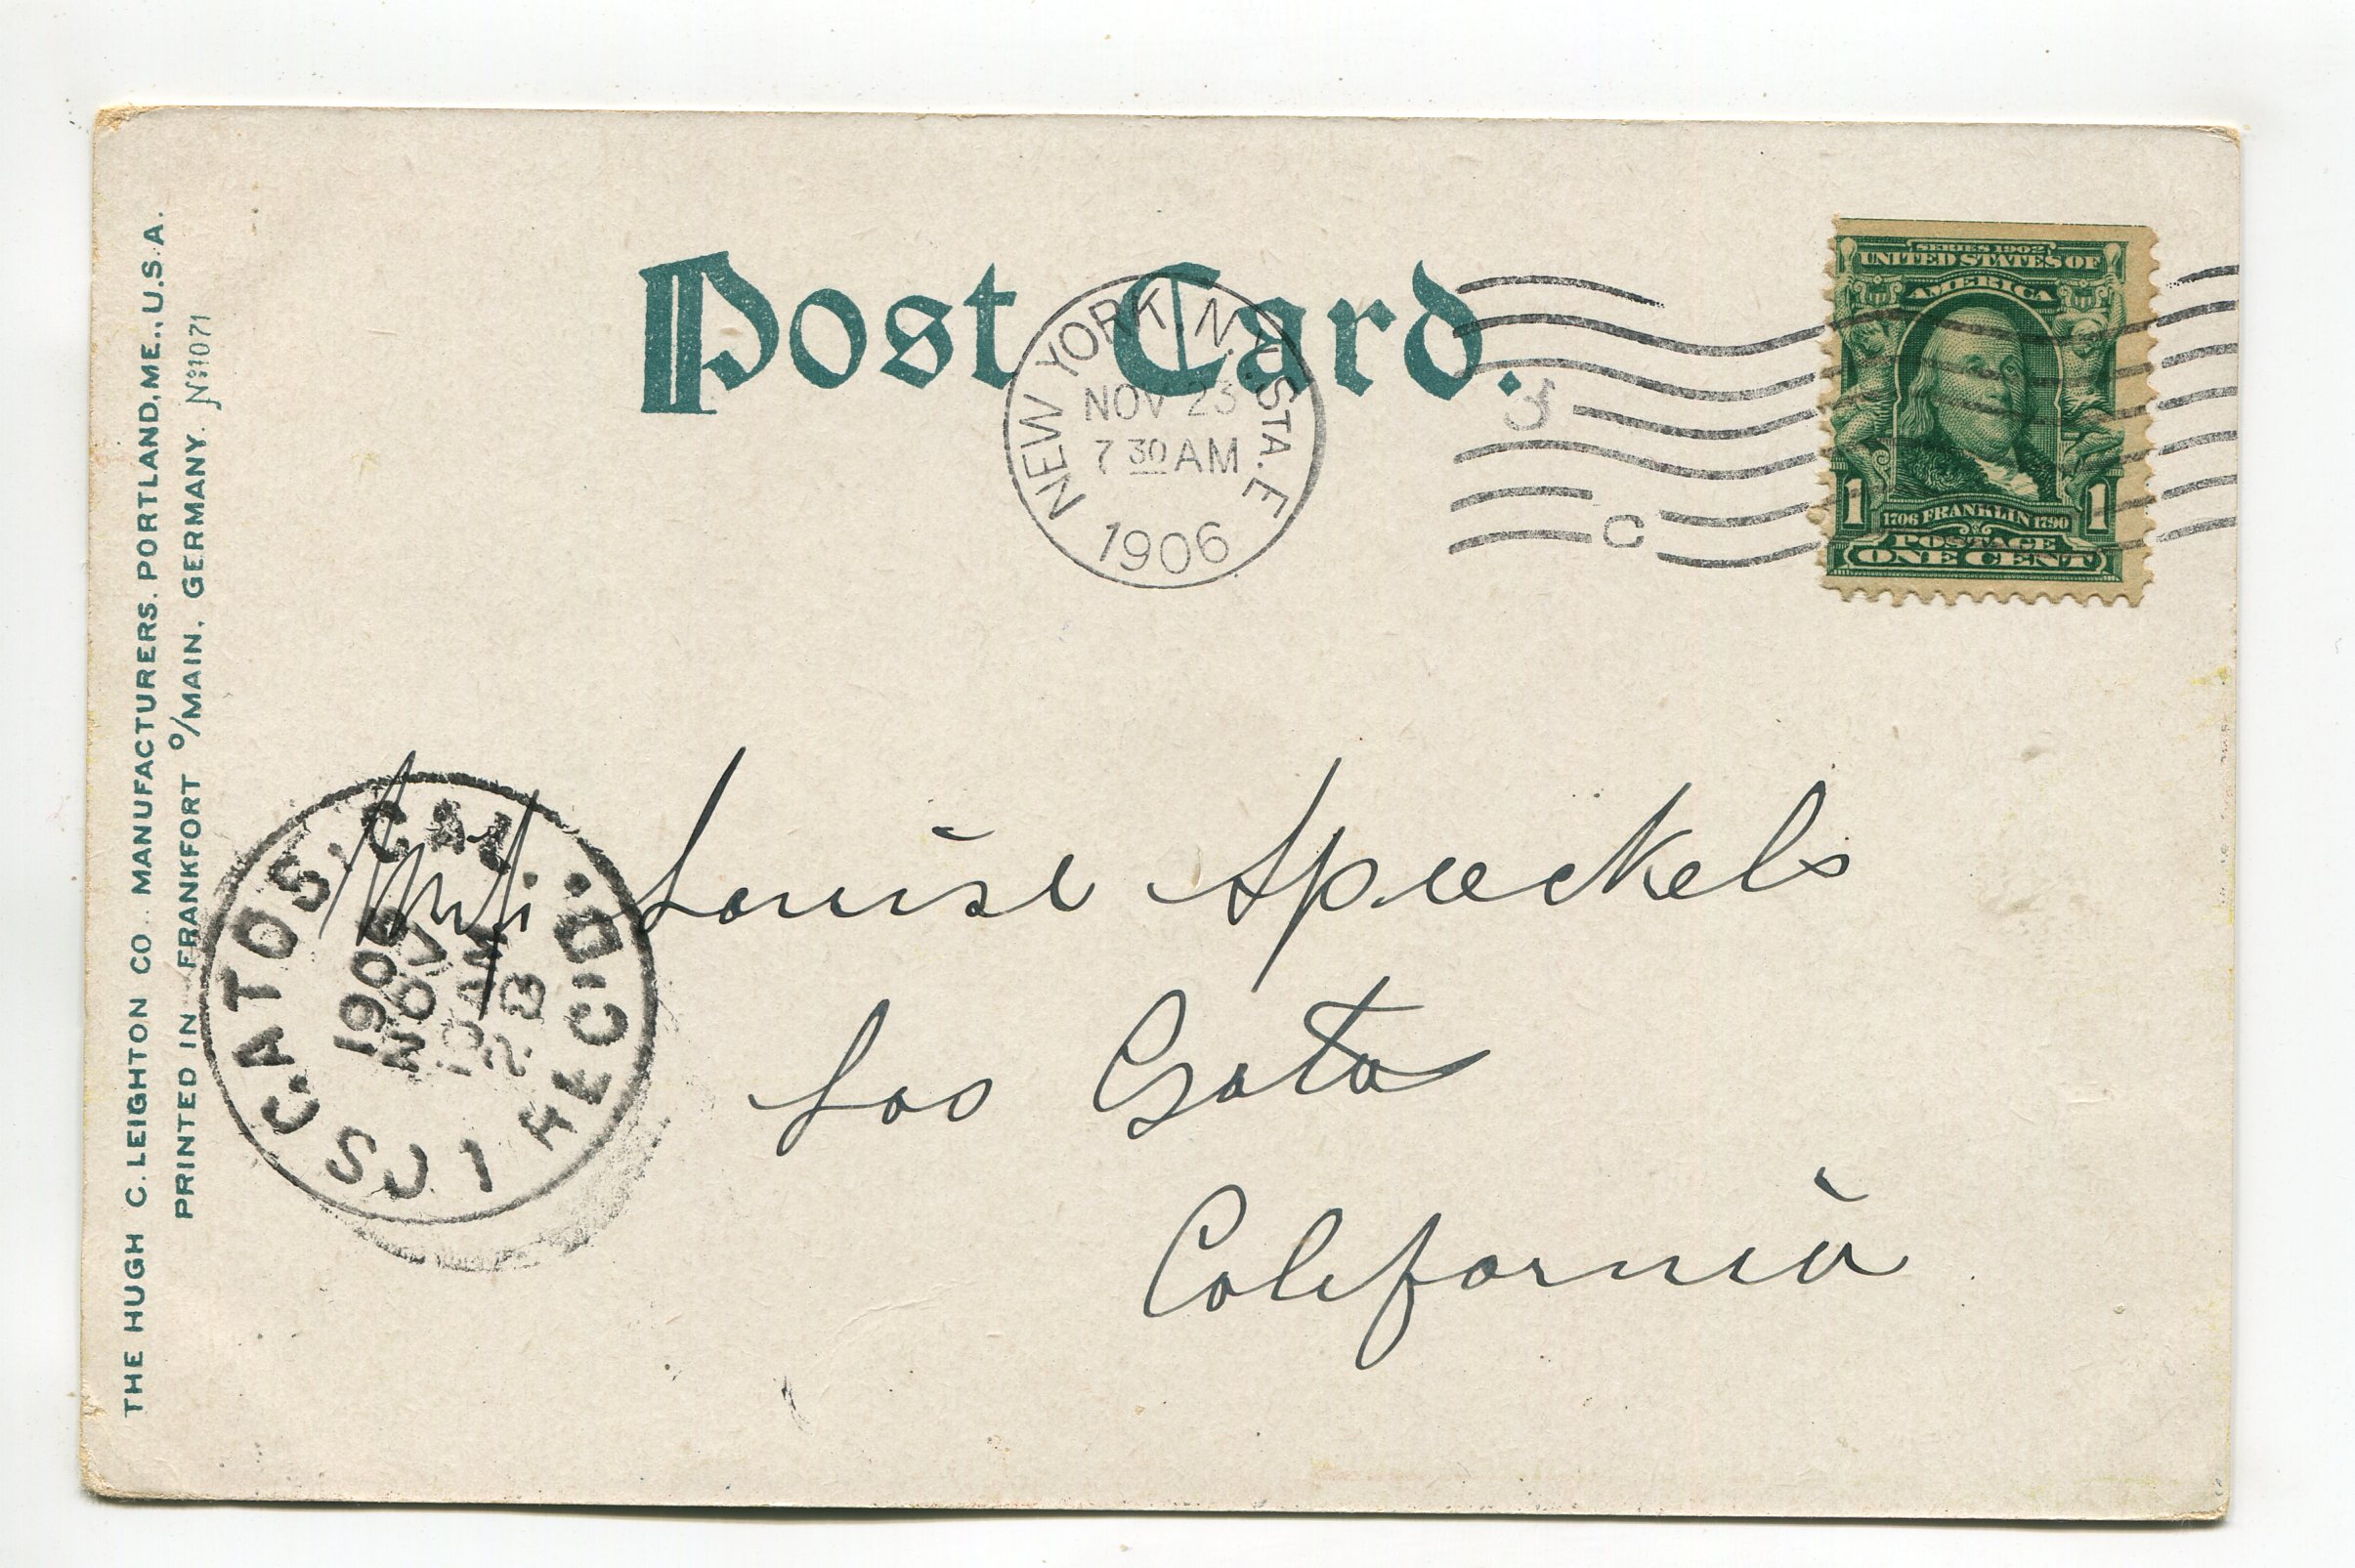 THE HUGH C. LEIGHTON CO. MANUFACTURERS. PORTLAND, ME., U.S.A.
PRINTED IN FRANKFORT o/MAIN, GERMANY.
Post Card.
NEW YORK, N.Y. STA. E
NOV 23
7 30 AM
1906
C
SERIES 1902
UNITED STATES OF
AMERICA
1 1706 FRANKLIN 1790 1
POSTAGE
ONE CENT
LOS GATOS, CAL.
REC'D.
1906
NOV
28
10 AM
Louise Spreckels
Los Gatos
California